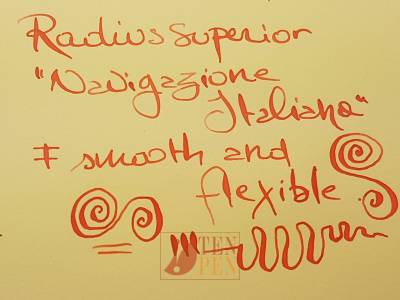 Radius Superior
"Navigazione
Italiana"
F smooth and
flexible.
TEN
PEN